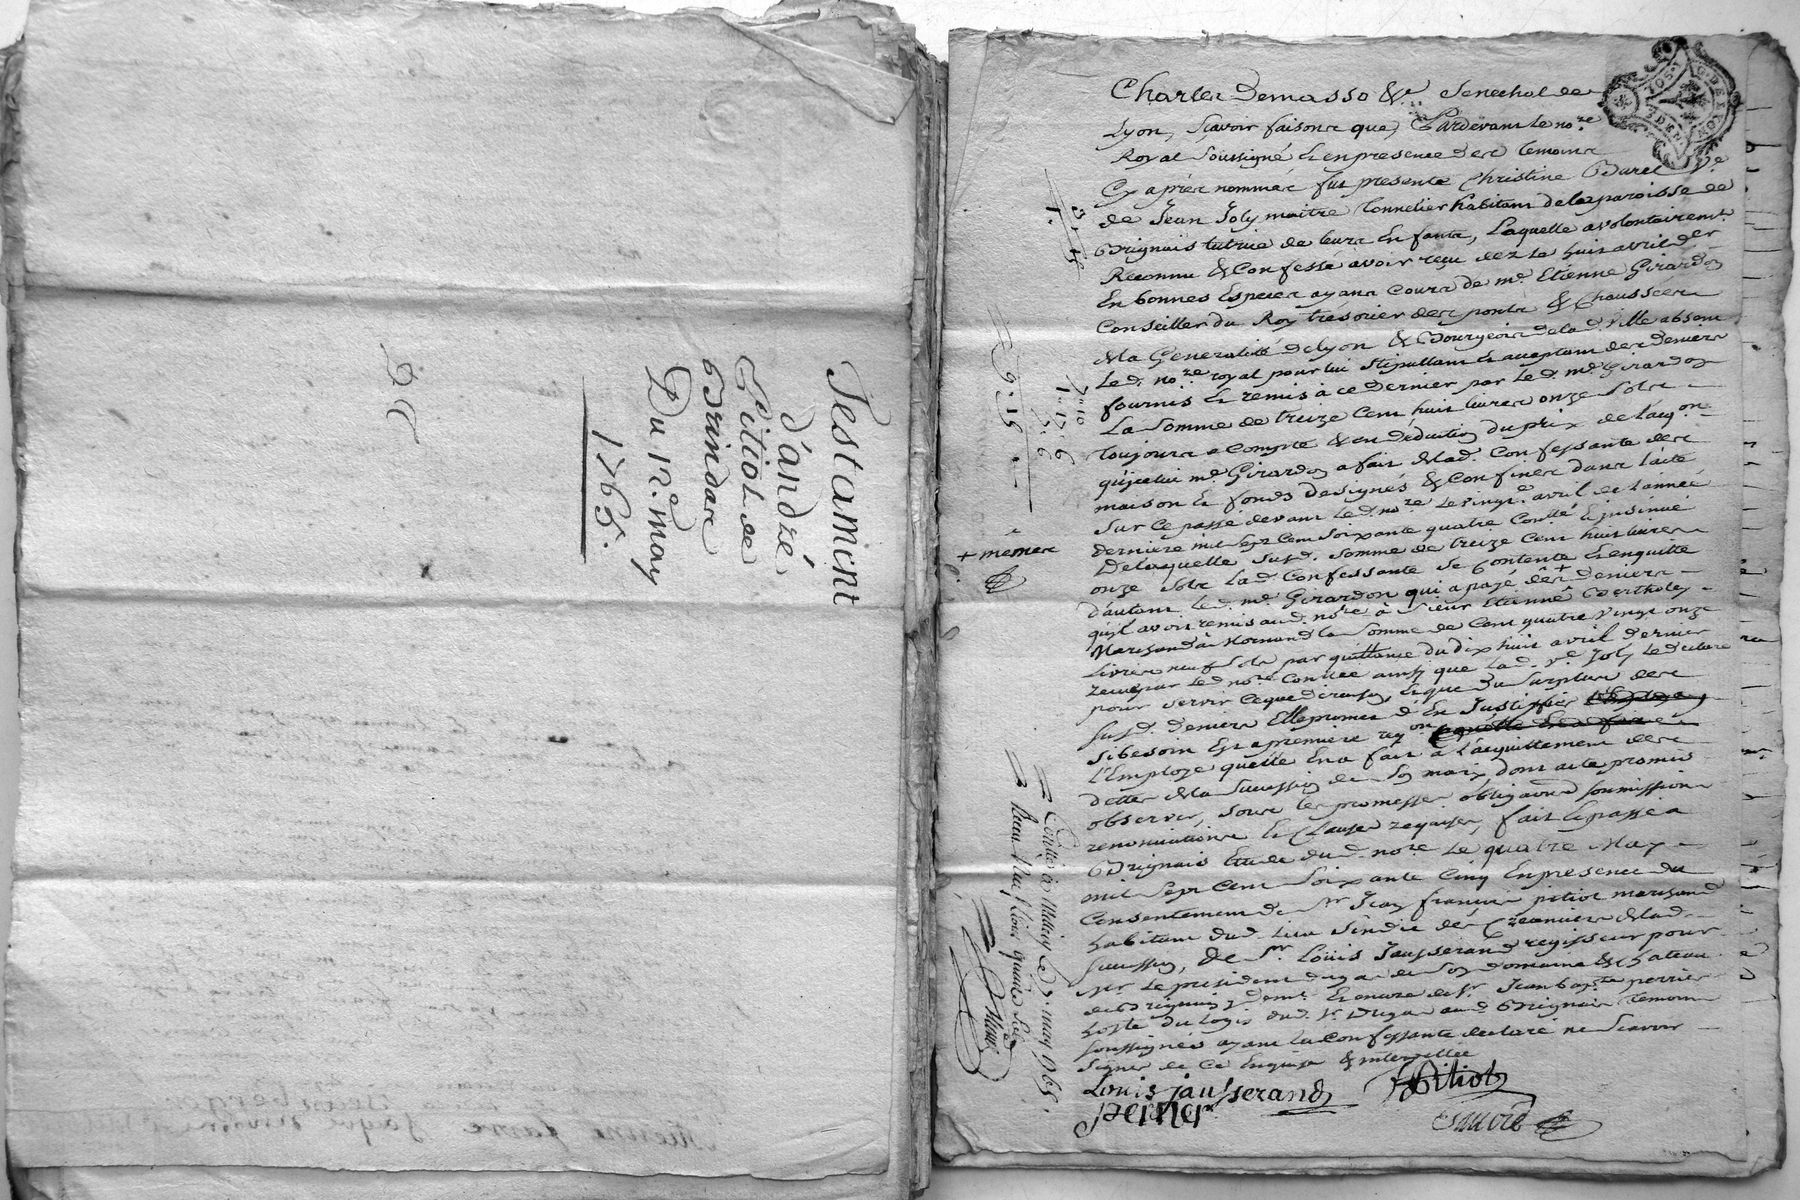 Testament
d'andré
Pitiot de
Brindas
Du 12e may
1765.
Charles Demasso &c Senechal de
Lyon, scavoir faisons que, Pardevant le nore
Royal soussigné & en presence des temoins
Cy après nommés fut presente Christine Buret Ve
de Jean Joly maitre tonnelier habitant de la paroisse de
Brignais tutrice de leurs Enfants, Laquelle a volontairemt
Reconnu & Confessé avoir reçu dez le huit avril der
En bonnes Especes ayant Cours de me Etienne Girardon
Conseiller du Roy tresorier des ponts & Chaussées
de la Generalité de Lyon & Bourgeois de lad. Ville absent
Led. nore royal pour lui stipullant & acceptant des deniers
fournis & remis à ce dernier par led. me Girardon
La Somme de treize Cent huit livres onze sols
toujours a Compte & en déduction du prix de l'acqon
qu'icelui me Girardon a fait de lad. Confessante des
maison & fonds designés & Confinés dans l'acte
Sur ce passé devant led. nore le vingt avril de l'année
derniere mil sept Cent soixante quatre Conllé & insinué
De laquelle susd. somme de treize Cent huit livres
onze sols lad. Confessante se Contente & en quitte
d'autant led. me Girardon qui a payé des + deniers
qu'il avoit remis aud. nore à sieur Etienne Bertholey
Marchand à Mornand la Somme de Cent quatre vingt onze
livres neuf sols par quittance du dix huit avril dernier
reçue par led. nore Conllée ainsy que lad. ve Joly le declare
pour servir ce que de raison, & que du surplus des
susd. deniers Elle promet d'En Justiffier
si besoin Est a premiere reqon
l'Employ qu'elle En a fait à l'acquittement des
dettes de la succession de son mary, dont acte promis
observer, sous les promesses obligaons soumissions
renonciations & Clauses requises, fait & passé a
Brignais Etude dud. nore Le quatre May
mil sept Cent soixante Cinq En presence du
Consentement de Sr Jean francois pitiot marchand
habitant dud. lieu sindic des Creanciers de lad.
succession, De Sr. Louis Jausserand regisseur pour
Mr le president dugas de son domaine & chateau
de Brignais y demt. & encore de Sr Jean bapte perrier
hoste du logis aud. Brignais temoins
soussignés ayant la Confessante declaré ne scavoir
signer de ce Enquise & interpellée
Louis jausserand
Pitiot
perrier
+ mêmes
9. 15
Conllé à may 1765.
Reçu